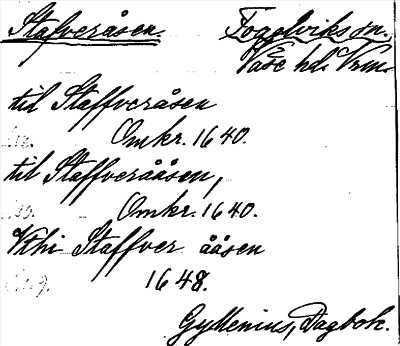 Stafveråsen. Fogelviks sn.
Väse hd. Vrm.
til Staffveråsen
Omkr. 1640.
til Staffverååsen,
Omkr. 1640.
Staffver ååsen
1648.
Gyllenius, Dagbok.